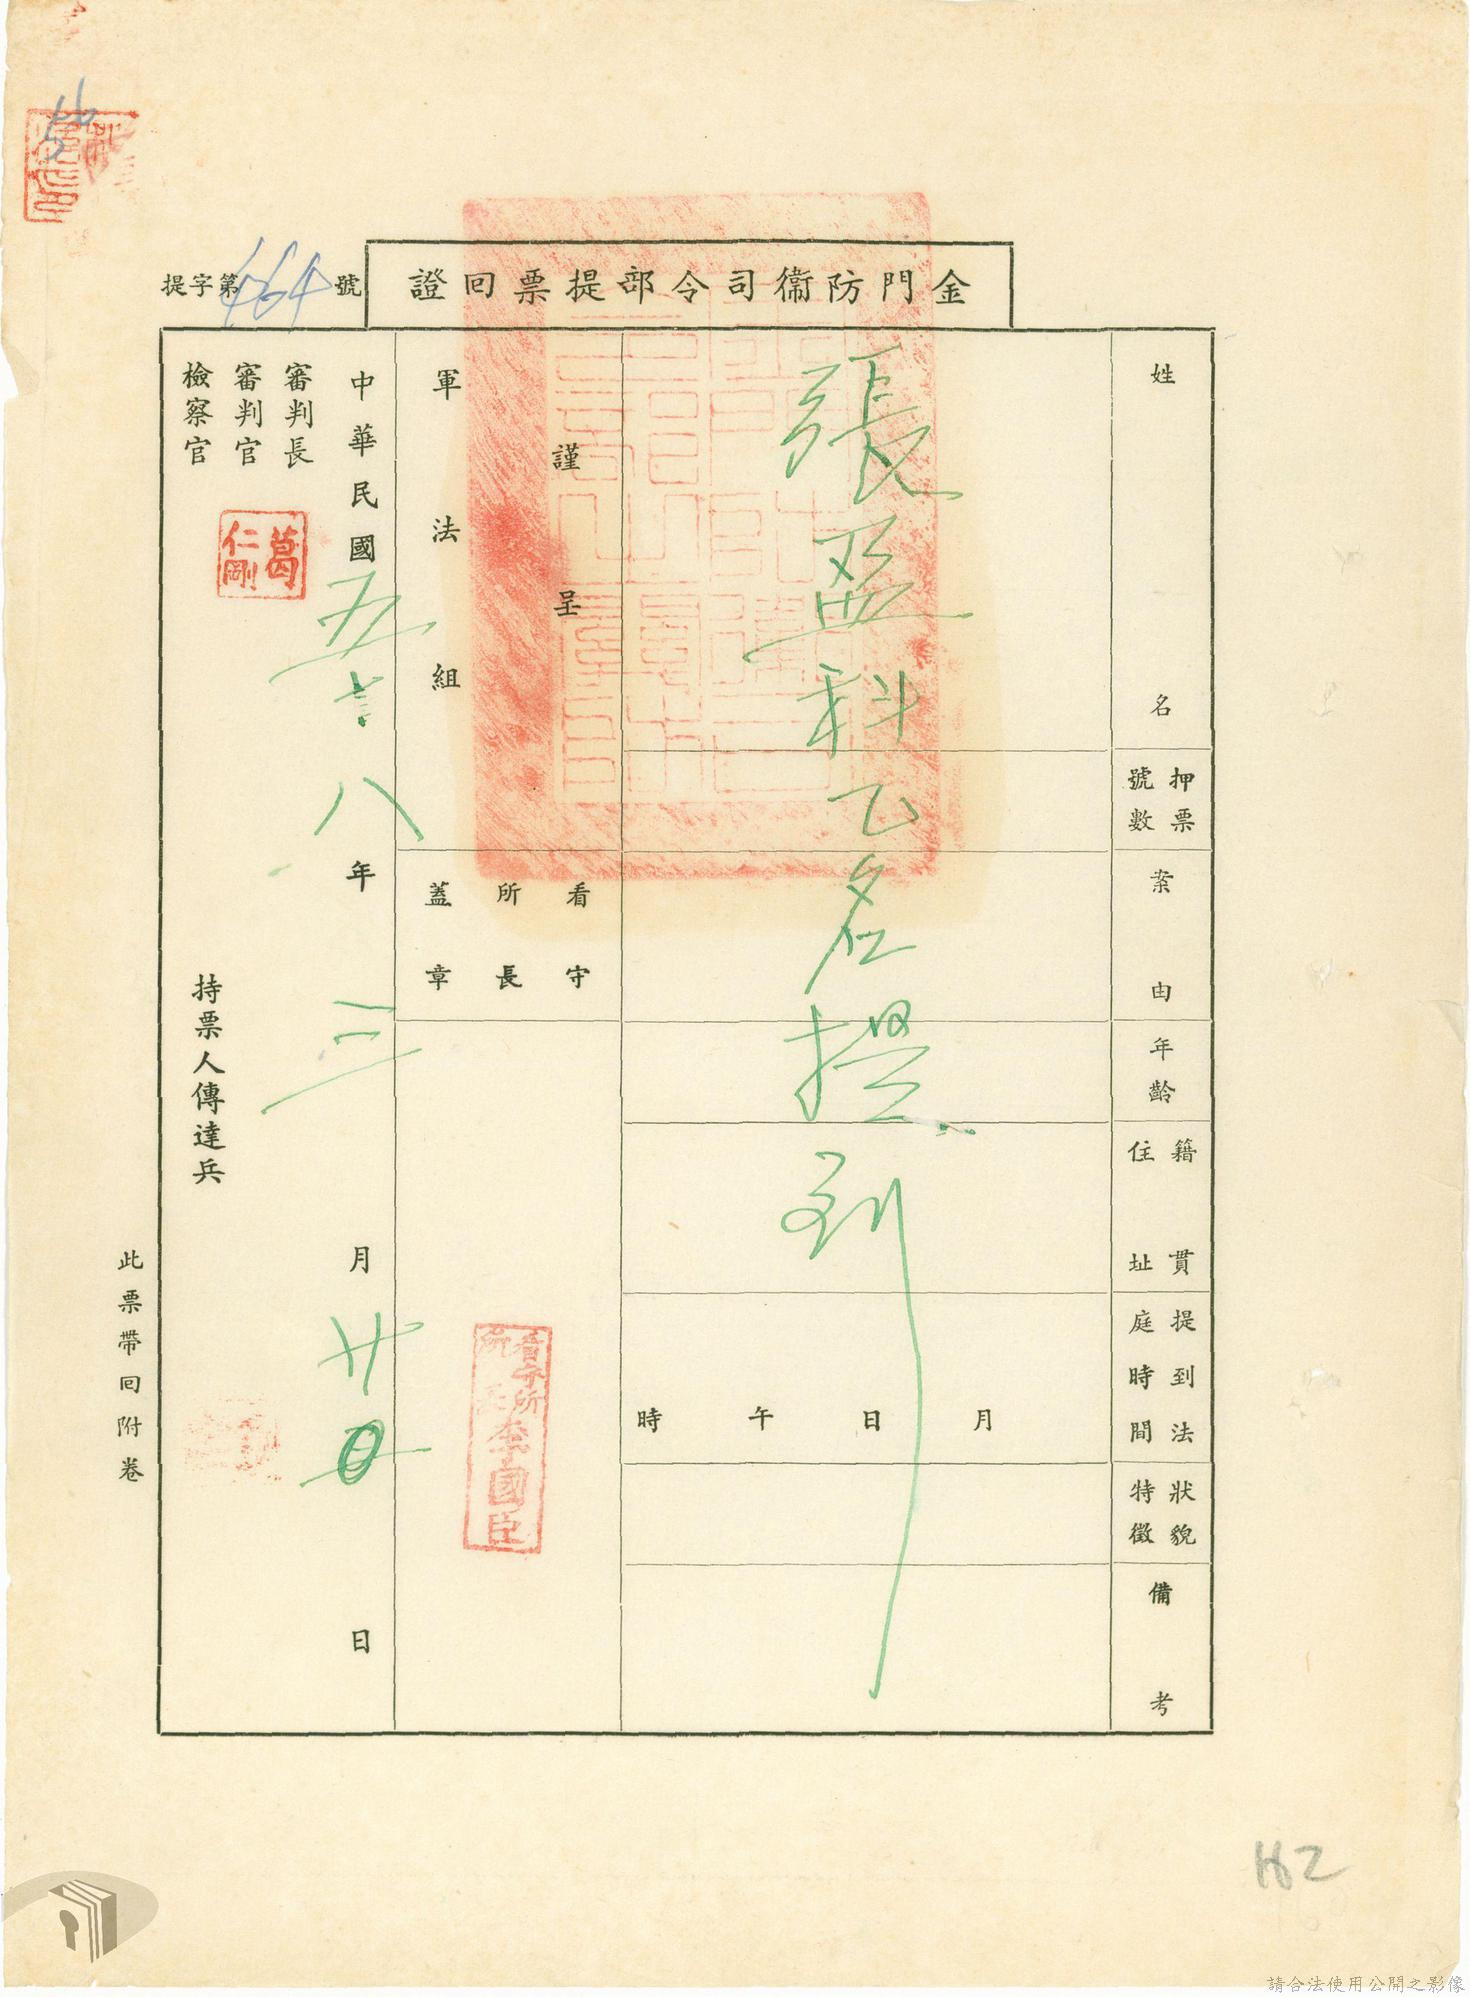 金門防衞司令部提票回證
提字第464號
姓名
押票號數
案由
年齡
籍貫住址
提到法庭時間
狀貌特徵
備考
張盈科乙名提到
月日午時
謹呈
軍法組
看守所長蓋章
看守所
所長李國臣
中華民國五十八年三月廿五日
審判長
審判官
檢察官
葛仁剛
持票人傳達兵
此票帶回附卷
請合法使用公開之影像